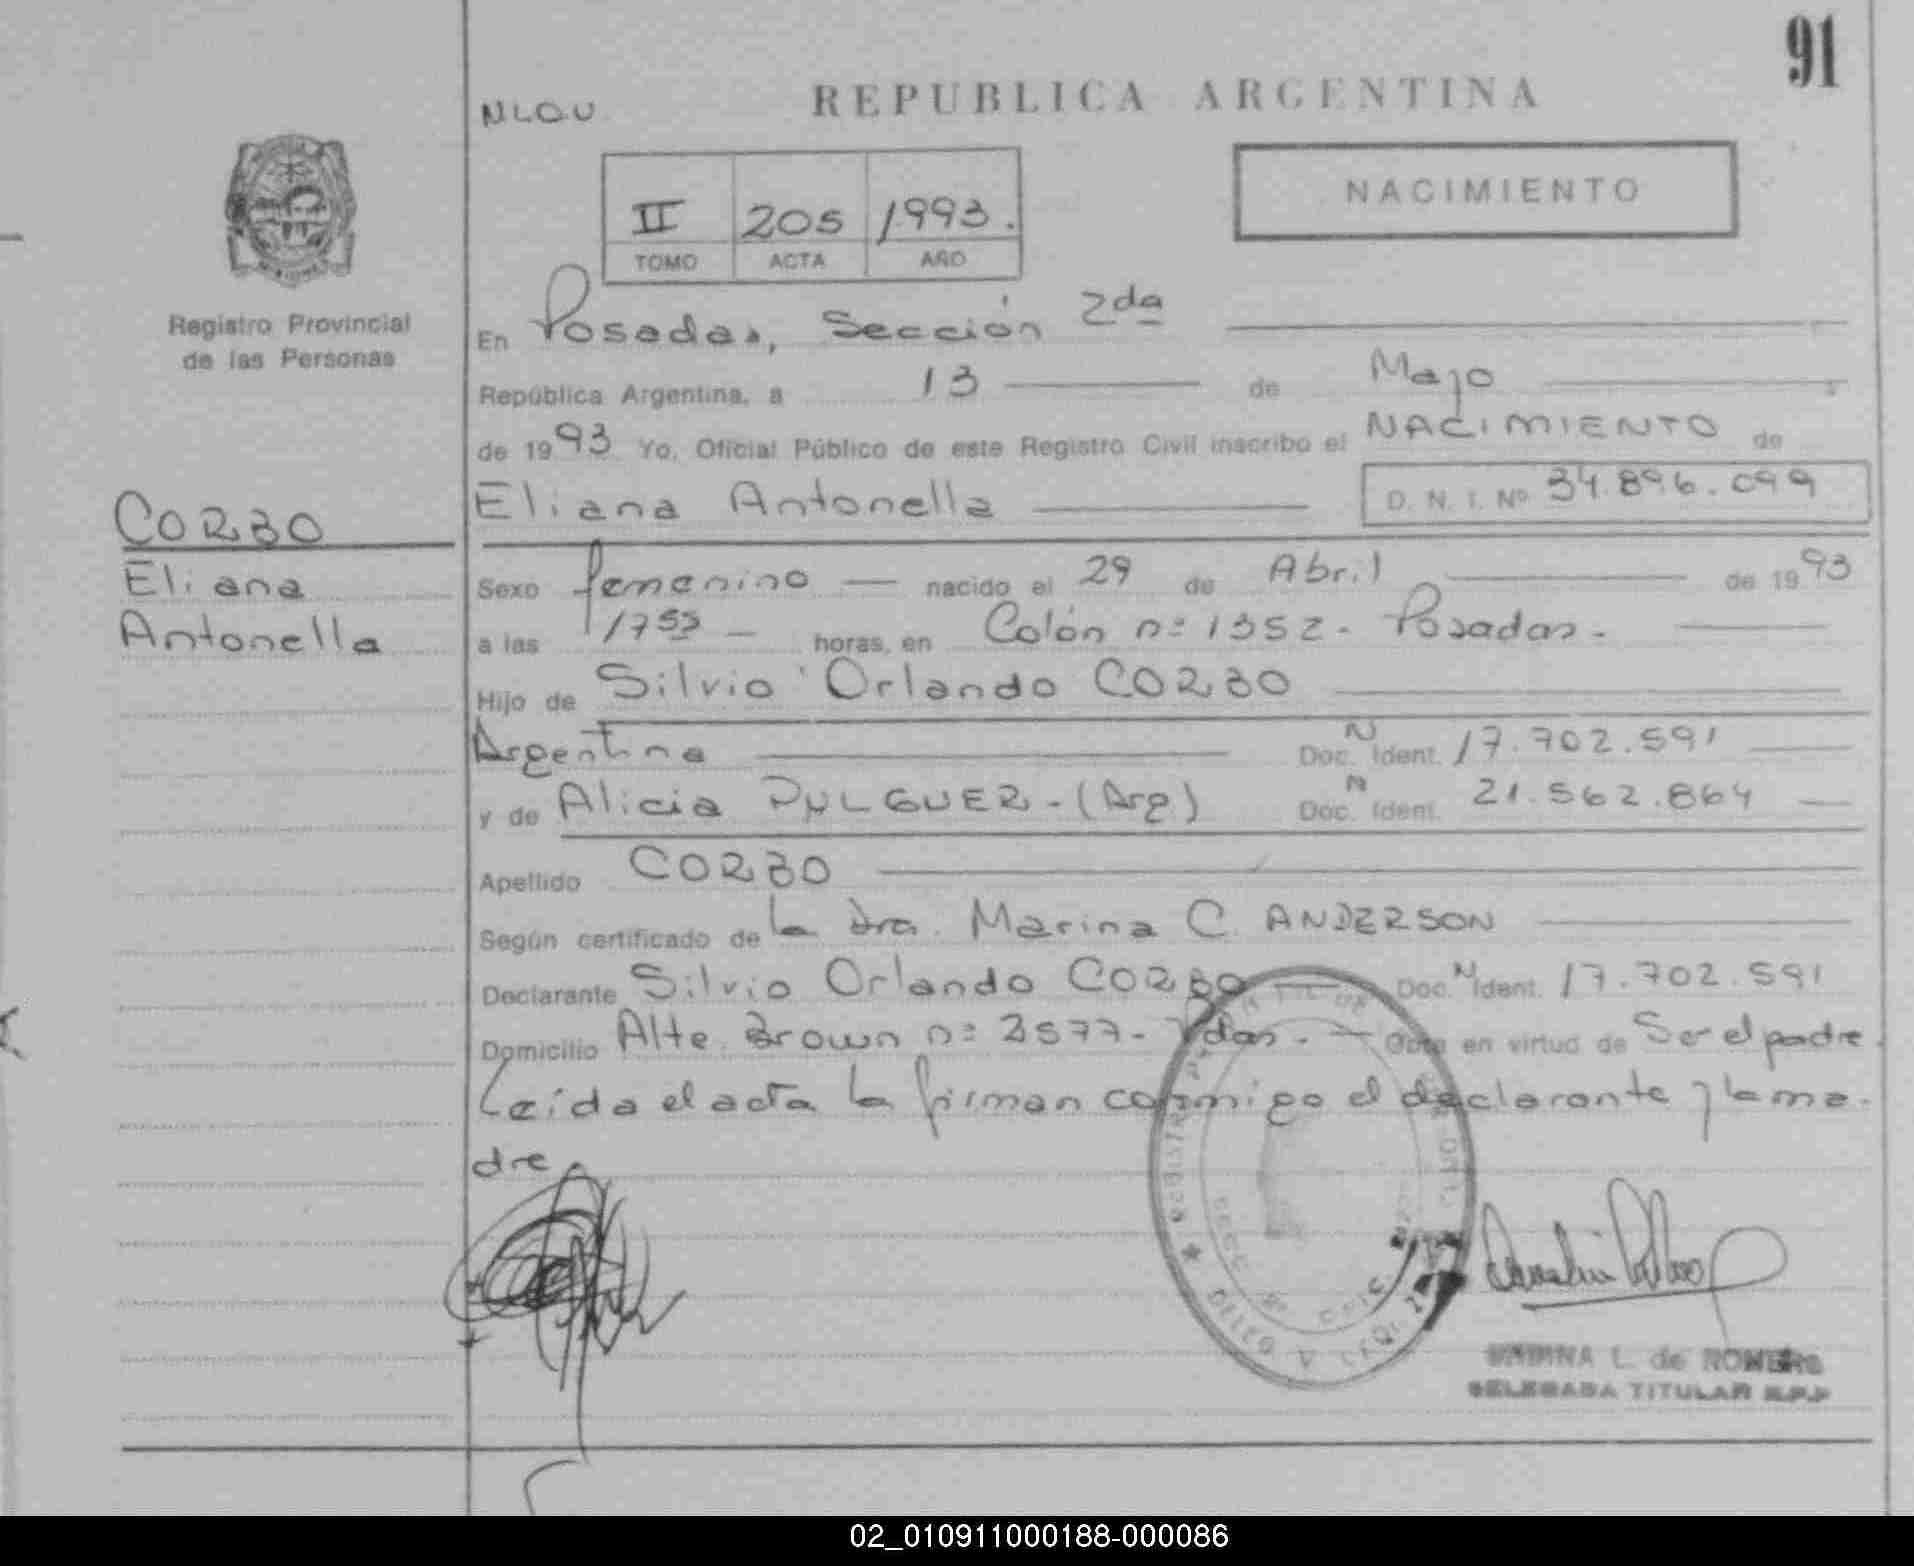 91
REPUBLICA ARGENTINA
NLQU
NACIMIENTO
II 205 1993.
TOMO ACTA AÑO
Registro Provincial
de las Personas
En Posadas, Sección 2da
República Argentina, a 13 de Mayo
de 1993 Yo, Oficial Público de este Registro Civil inscribo el NACIMIENTO de
Eliana Antonella D. N. I. Nº 34.896.099
CORBO
Eliana
Antonella
Sexo femenino nacido el 29 de Abril de 1993
a las 1753 horas, en Colón nº 1352 - Posadas.
Hijo de Silvio Orlando CORBO
Argentina Doc. N Ident. 17.702.591
y de Alicia DULGUER - (Arg) Doc. N Ident. 21.562.864
Apellido CORBO
Según certificado de la dra. Marina C. ANDERSON
Declarante Silvio Orlando CORBO Doc. N Ident. 17.702.591
Domicilio Alte. Brown nº 2577 - Pdas. - Obra en virtud de Ser el padre.
Leída el acta la firman conmigo el declarante y la ma-
dre
L. de ROMERO
DELEGADA TITULAR R.P.P
02_010911000188-000086